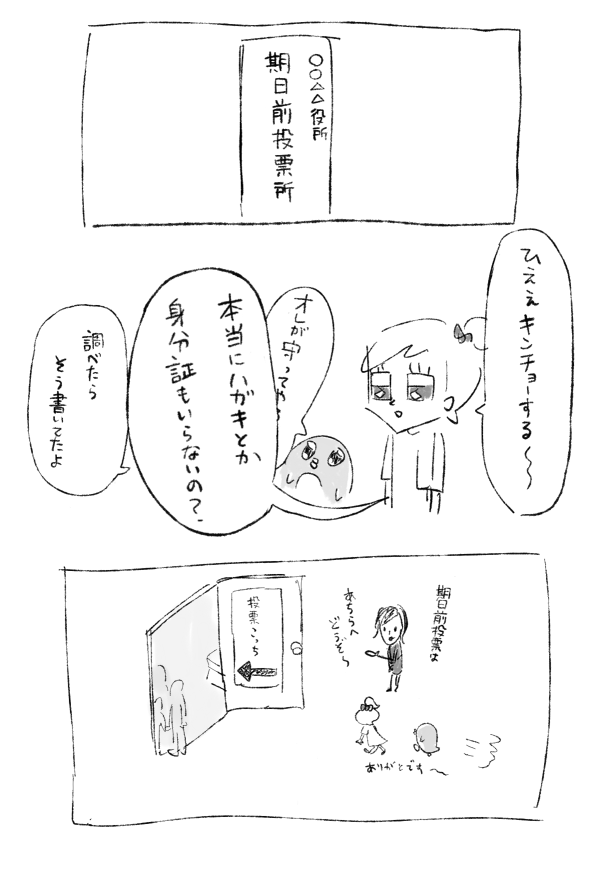 ○○△△役所
期日前投票所
ひええキンチョーする〜〜
オレが守ってやる
本当にハガキとか
身分証もいらないの?
調べたら
そう書いてたよ
期日前投票は
あちらへ
どうぞ〜
投票こっち
ありがとです〜